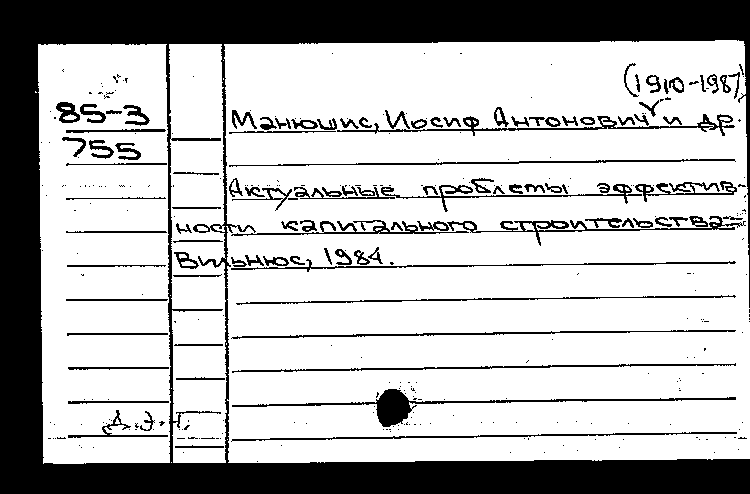 (1910-1987)
85-3
755
Манюшис, Иосиф Антонович и др.
Актуальные проблемы эффектив-
ности капитального строительства=
Вильнюс, 1984.
Д.э.н.